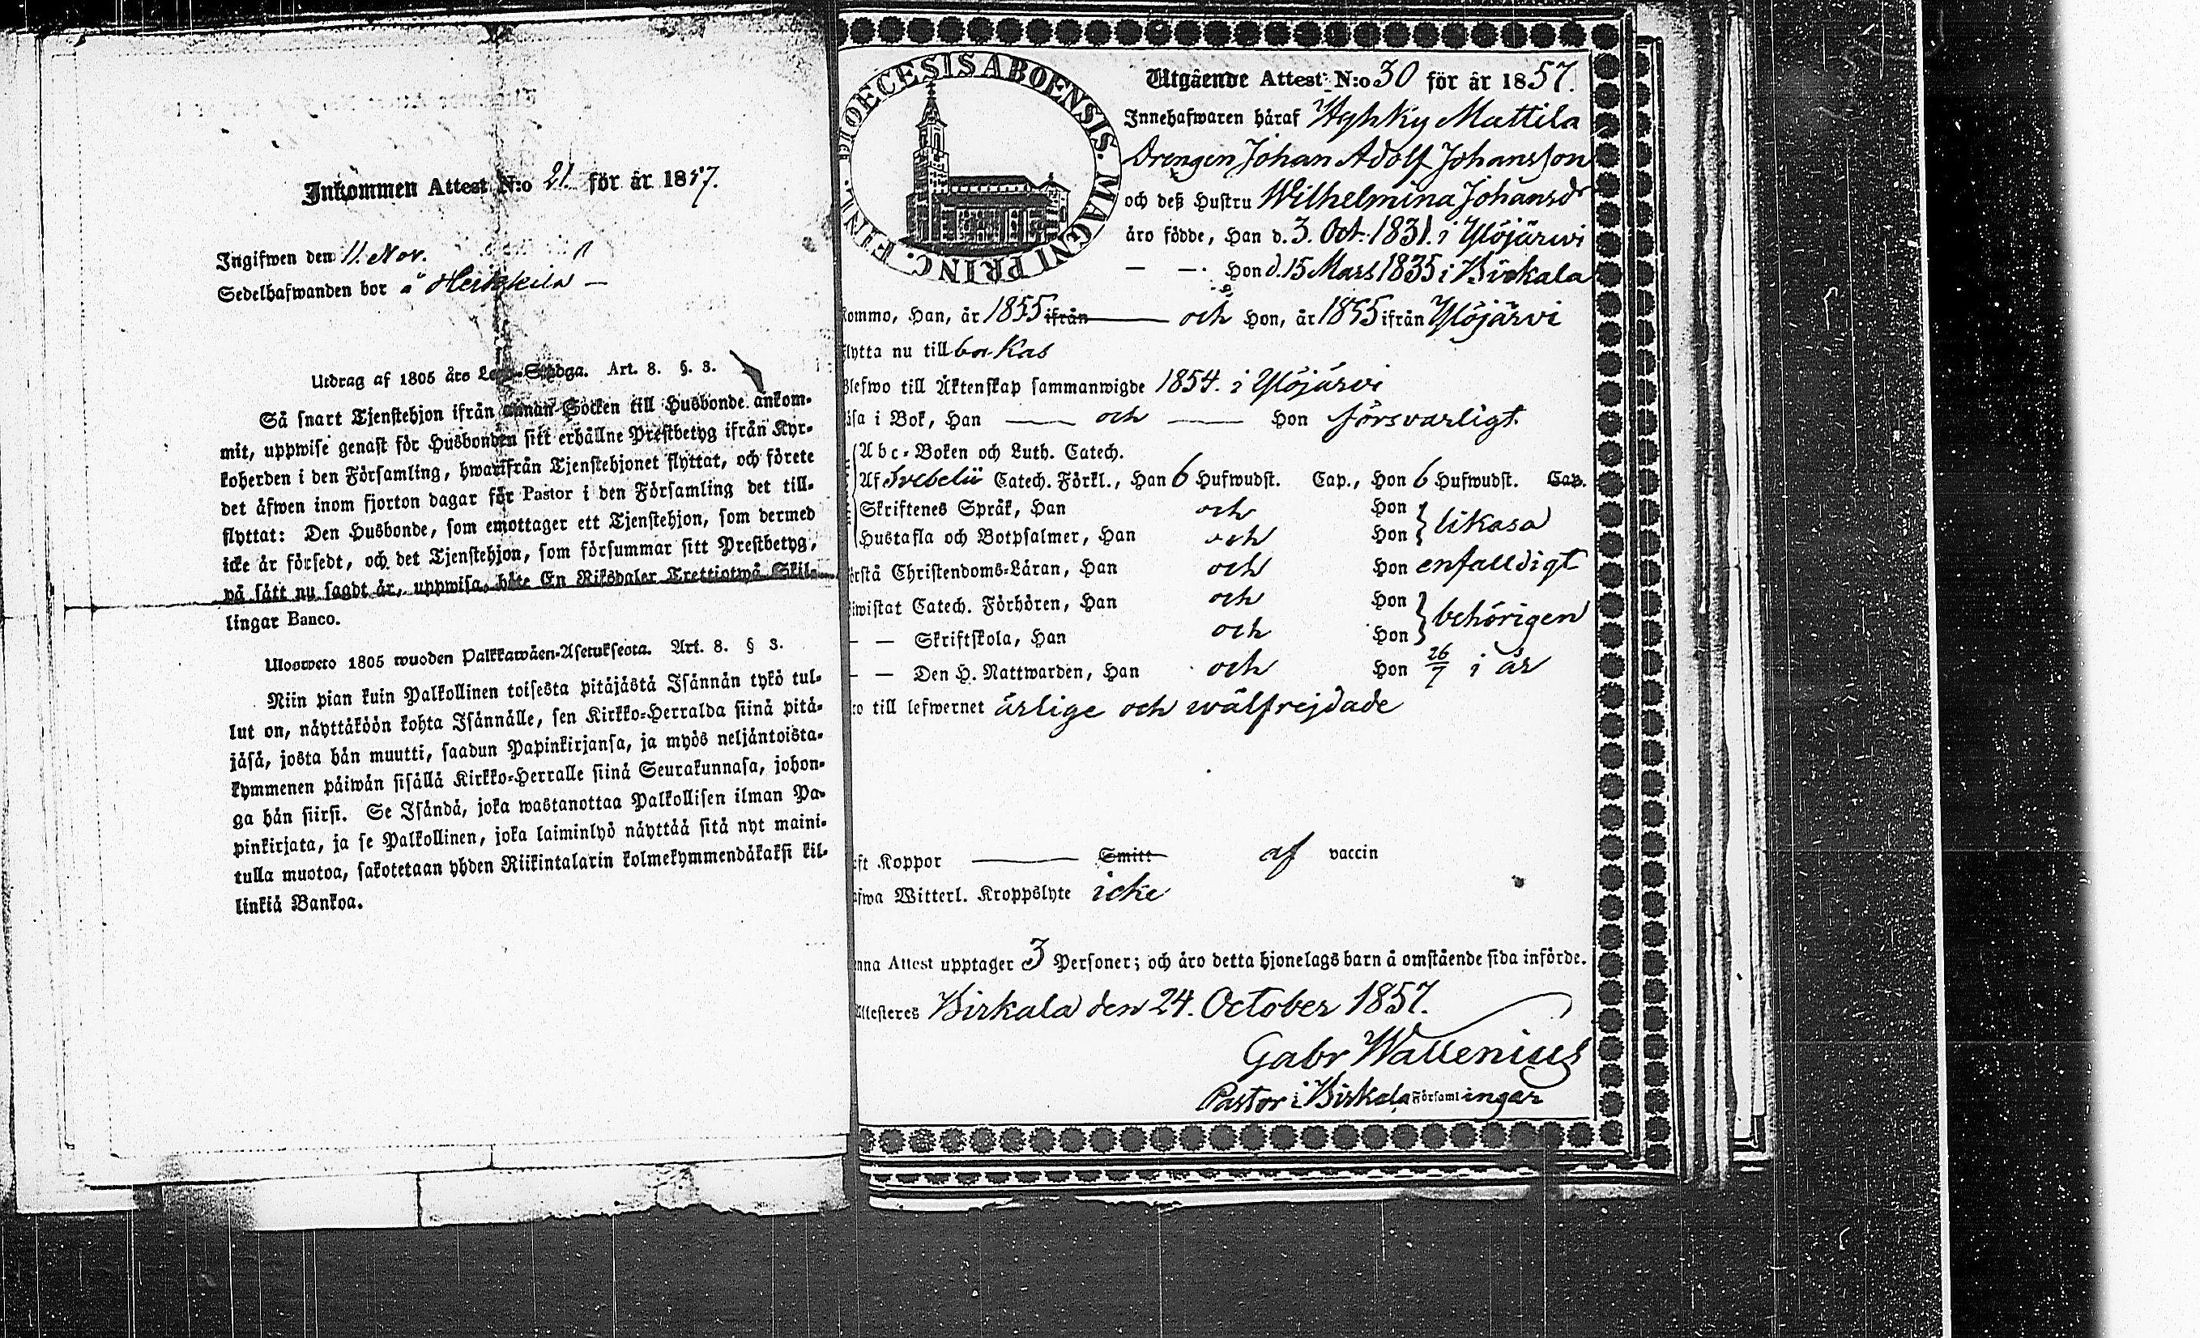 Inkommen Attest N:o 21 för år 1857.
Ingifwen den 11. Nov.
Sedelhafwanden bor å Heikkilä
Utdrag af 1805 års Lego-Stadga. Art. 8. §. 3.
Så snart Tjenstehjon ifrån annan Socken till Husbonde ankom-
mit, uppwise genast för Husbonden sitt erhållne Prestbetyg ifrån Kyr-
koherden i den Församling, hwarifrån Tjenstehjonet flyttat, och förete
det äfwen inom fjorton dagar för Pastor i den Församling det till-
flyttat: Den Husbonde, som emottager ett Tjenstehjon, som dermed
icke är försedt, och det Tjenstehjon, som försummar sitt Prestbetyg,
på sätt nu sagdt är, uppwisa, böte En Riksdaler Trettiotwå Skil-
lingar Banco.
Ulosweto 1805 wuoden Palkkawäen-Asetuksesta. Art. 8. § 3.
Niin pian kuin Palkollinen toisesta pitäjästä Isännän tykö tul-
lut on, näyttäköön kohta Isännälle, sen Kirkko-Herralda siinä pitä-
jäsä, josta hän muutti, saadun Papinkirjansa, ja myös neljäntoista-
kymmenen päiwän sisällä Kirkko-Herralle siinä Seurakunnasa, johon-
ga hän siirsi. Se Isändä, joka wastanottaa Palkollisen ilman Pa-
pinkirjata, ja se Palkollinen, joka laiminlyö näyttää sitä nyt maini-
tulla muotoa, sakotetaan yhden Riikintalarin kolmekymmendäkaksi kil-
linkiä Bankoa.
DIOECESIS ABOENSIS. MAGNI PRINC. FINL.
Utgående Attest N:o 30 för år 1857.
Innehafwaren häraf Hyhky Mattila
Drengen Johan Adolf Johansson
och deß Hustru Wilhelmina Johansdr
äro födde, Han d. 3. Oct. 1831. i Ylöjärwi
— — Hon d. 15 Mars 1835 i Birkala
kommo, Han, år 1855 ifrån och Hon, år 1855 ifrån Ylöjärvi
flytta nu till bakas
Blefwo till Äktenskap sammanwigde 1854. i Ylöjärvi
läsa i Bok, Han — och — Hon försvarligt
Abc-Boken och Luth. Catech.
Af Svebelii Catech. Förkl., Han 6 Hufwudst. Cap., Hon 6 Hufwudst. Cap.
Skriftenes Språk, Han och Hon
Hustafla och Botpsalmer, Han och Hon } likasa
förstå Christendoms-Läran, Han och Hon enfalldigt
biwistat Catech. Förhören, Han och Hon
— — Skriftskola, Han och Hon } behörigen
— — Den H. Nattwarden, Han och Hon 26/7 i år
äro till lefwernet ärlige och wälfrejdade
haft Koppor — Smitt af vaccin
hafwa Witterl. Kroppslyte icke
Denna Attest upptager 3 Personer; och äro detta hjonelags barn å omstående sida införde.
Attesteres Birkala den 24. October 1857.
Gabr Wallenius
Pastor i Birkala Församlingar